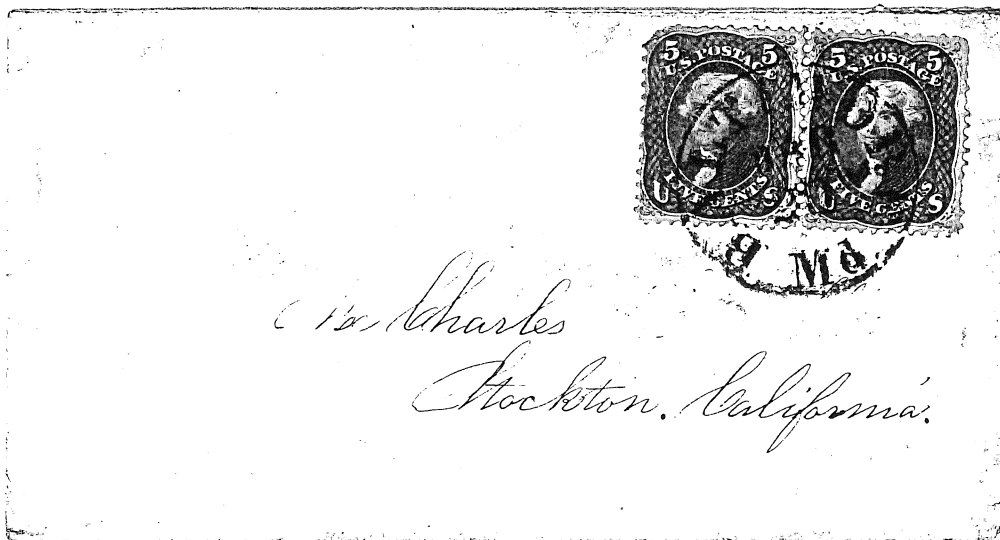 5 5
U.S. POSTAGE
FIVE CENTS
U S
5 5
U.S. POSTAGE
FIVE CENTS
U S
Charles
Stockton. California.